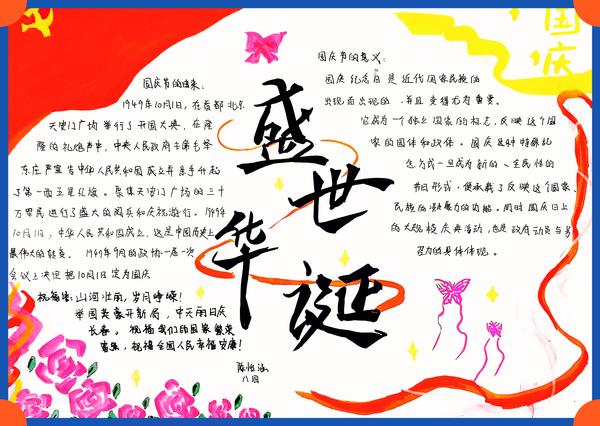 国庆
盛世华诞
国庆节的由来:
1949年10月1日,在首都北京
天安门广场举行了开国大典,在隆
隆的礼炮声中,中央人民政府主席毛泽
东庄严宣告中华人民共和国成立并亲手升起
了第一面五星红旗。聚集天安门广场的三十
万军民进行了盛大的阅兵和庆祝游行。1949年
10月1日,中华人民共和国成立,这是中国历史上
最伟大的转变。1949年9月的政协一届一次
会议上决定把10月1日定为国庆
祝福语:山河壮丽,岁月峥嵘!
举国英豪开新局,中天丽日庆
长春。祝福我们的国家繁荣
富强,祝福全国人民幸福安康!
八
国庆节的意义:
国庆纪念日是近代国家民族的
出现而出现的,并且变得尤为重要。
它成为一个独立国家的标志,反映这个国
家的国体和政体。国庆这种特殊纪
念方式一旦成为新的、全民性的
节日形式,便承载了反映这个国家、
民族的凝聚力的功能。同时国庆日上
的大规模庆典活动,也是政府动员与号
召力的具体体现。